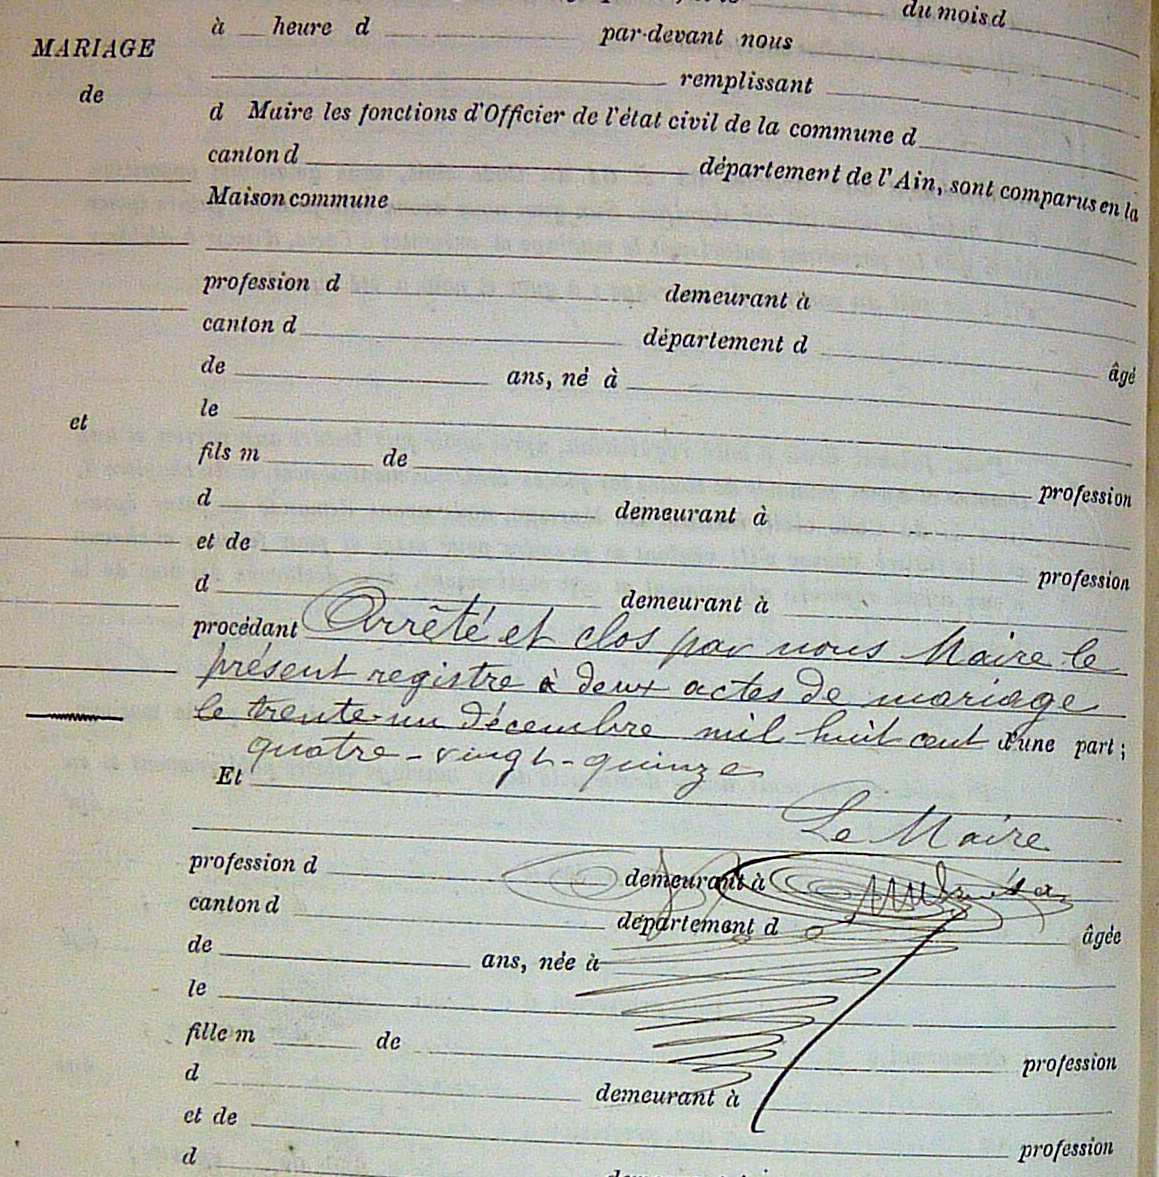 du mois d
à heure d par-devant nous
MARIAGE
remplissant
de
d Maire les fonctions d'Officier de l'état civil de la commune d
canton d département de l'Ain, sont comparus en la
Maison commune
profession d demeurant à
canton d département d
âgé
de ans, né à
le
et
fils m de
profession
d demeurant à
et de
profession
d demeurant à
procédant Arrêté et clos par nous Maire le
présent registre à deux actes de mariage
le trente-un décembre mil huit cent d'une part;
quatre-vingt-quinze
Et
Le Maire
profession d demeurant à
canton d département d
âgée
de ans, née à
le
fille m de
profession
d demeurant à
et de
profession
d